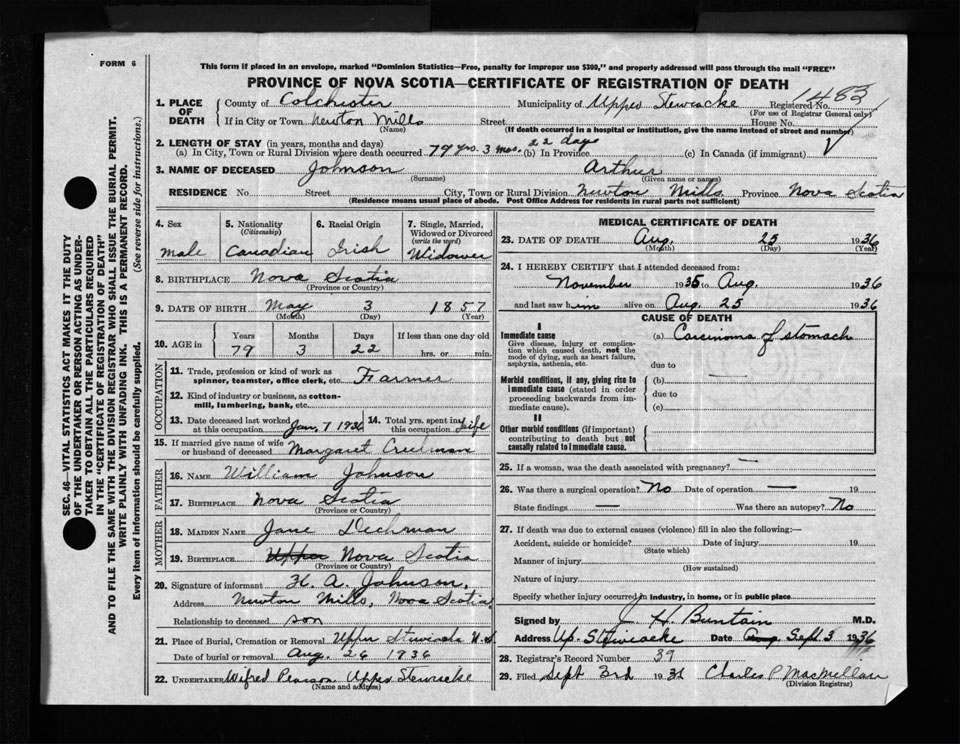 FORM 6
This form if placed in an envelope, marked "Dominion Statistics—Free, penalty for improper use $300," and properly addressed will pass through the mail "FREE"
PROVINCE OF NOVA SCOTIA—CERTIFICATE OF REGISTRATION OF DEATH
1482
1. PLACE OF DEATH County of Colchester Municipality of Upper Stewiacke Registered No.
(For use of Registrar General only)
If in City or Town Newton Mills Street House No.
(Name) (If death occurred in a hospital or institution, give the name instead of street and number)
2. LENGTH OF STAY (in years, months and days)
(a) In City, Town or Rural Division where death occurred 79 yrs. 3 mos. 22 days (b) In Province (c) In Canada (if immigrant)
3. NAME OF DECEASED Johnson Arthur
(Surname) (Given name or names)
RESIDENCE No. Street City, Town or Rural Division Newton Mills Province Nova Scotia
(Residence means usual place of abode. Post Office Address for residents in rural parts not sufficient)
4. Sex 5. Nationality (Citizenship) 6. Racial Origin 7. Single, Married, Widowed or Divorced (write the word)
male Canadian Irish Widower
8. BIRTHPLACE Nova Scotia
(Province or Country)
9. DATE OF BIRTH May 3 1857
(Month) (Day) (Year)
10. AGE in Years Months Days If less than one day old
79 3 22 hrs. or min.
OCCUPATION
11. Trade, profession or kind of work as spinner, teamster, office clerk, etc. Farmer
12. Kind of industry or business, as cotton-mill, lumbering, bank, etc.
13. Date deceased last worked at this occupation Jan. 7 1936
14. Total yrs. spent in this occupation Life
15. If married give name of wife or husband of deceased Margaret Creelman
FATHER
16. NAME William Johnson
17. BIRTHPLACE Nova Scotia
(Province or Country)
MOTHER
18. MAIDEN NAME Jane Dechman
19. BIRTHPLACE Upper Nova Scotia
(Province or Country)
20. Signature of informant H. A. Johnson,
Address Newton Mills, Nova Scotia
Relationship to deceased son
21. Place of Burial, Cremation or Removal Upper Stewiacke N.S.
Date of burial or removal Aug. 26 1936
22. UNDERTAKER Wilfred Pearson Upper Stewiacke
(Name and address)
MEDICAL CERTIFICATE OF DEATH
23. DATE OF DEATH Aug. 25 1936
(Month) (Day) (Year)
24. I HEREBY CERTIFY that I attended deceased from:
November 1935 to Aug. 1936
and last saw him alive on Aug. 25 1936
CAUSE OF DEATH
I
Immediate cause (a) Carcinoma of stomach
Give disease, injury or complication which caused death, not the mode of dying, such as heart failure, asphyxia, asthenia, etc.
due to
Morbid conditions, if any, giving rise to immediate cause (stated in order proceeding backwards from immediate cause).
(b)
due to
(c)
II
Other morbid conditions (if important) contributing to death but not causally related to immediate cause.
25. If a woman, was the death associated with pregnancy? —
26. Was there a surgical operation? No Date of operation — 19
State findings — Was there an autopsy? No
27. If death was due to external causes (violence) fill in also the following:—
Accident, suicide or homicide? Date of injury 19
(State which)
Manner of injury
(How sustained)
Nature of injury
Specify whether injury occurred in industry, in home, or in public place
Signed by J. H. Buntain M.D.
Address Up. Stewiacke Date Aug. Sept. 3 1936
28. Registrar's Record Number 39
29. Filed Sept 3rd 1936 Charles P MacMillan
(Division Registrar)
SEC. 46—VITAL STATISTICS ACT MAKES IT THE DUTY
OF THE UNDERTAKER OR PERSON ACTING AS UNDER-
TAKER TO OBTAIN ALL THE PARTICULARS REQUIRED
IN THE "CERTIFICATE OF REGISTRATION OF DEATH"
AND TO FILE THE SAME WITH THE DIVISION REGISTRAR WHO SHALL ISSUE THE BURIAL PERMIT.
WRITE PLAINLY WITH UNFADING INK. THIS IS A PERMANENT RECORD.
Every item of information should be carefully supplied. (See reverse side for instructions.)